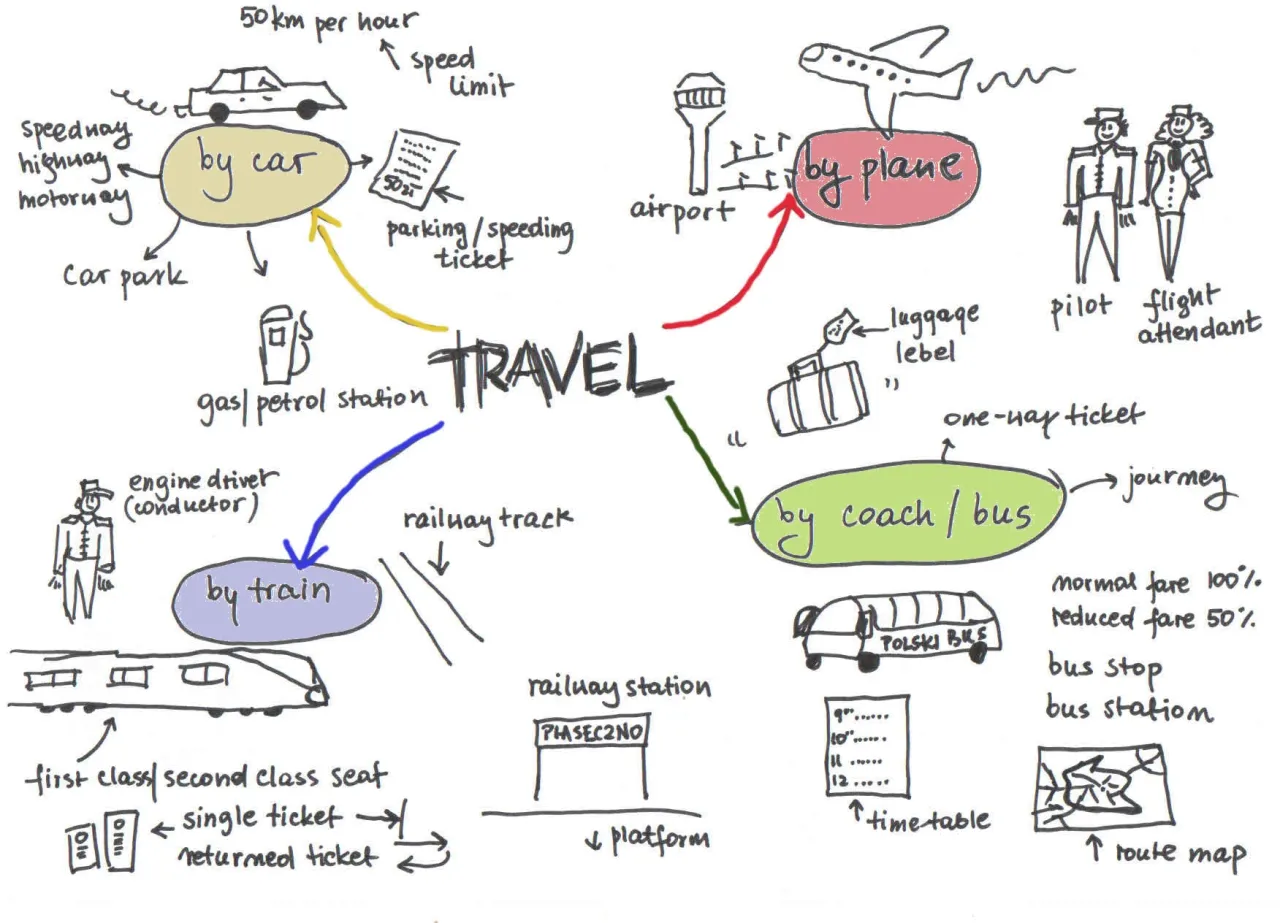 50km per hour
speed
limit
by car
speedway
highway
motorway
50zł
parking/speeding
ticket
car park
gas/petrol station
by plane
airport
pilot
flight
attendant
TRAVEL
luggage
lebel
one-way ticket
by coach/bus
journey
normal fare 100%
reduced fare 50%
bus stop
bus station
POLSKI BUS
9⁰⁰......
10⁰⁰......
11 ......
12 ......
time table
route map
engine driver
(conductor)
by train
railway track
first class/second class seat
single ticket
returned ticket
railway station
PIASECZNO
platform